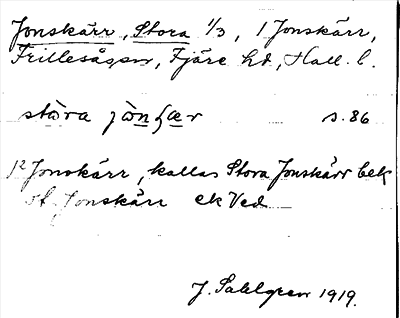 Jonskärr, Stora 1/3, 1 Jonskärr,
Frillesåsen, Fjäre hd, Hall. l.
stòra jònʃær s. 86
1² Jonskärr, kallas Stora Jonskärr bek
st. Jonskärr ek Ved
J. Sahlgren 1919.